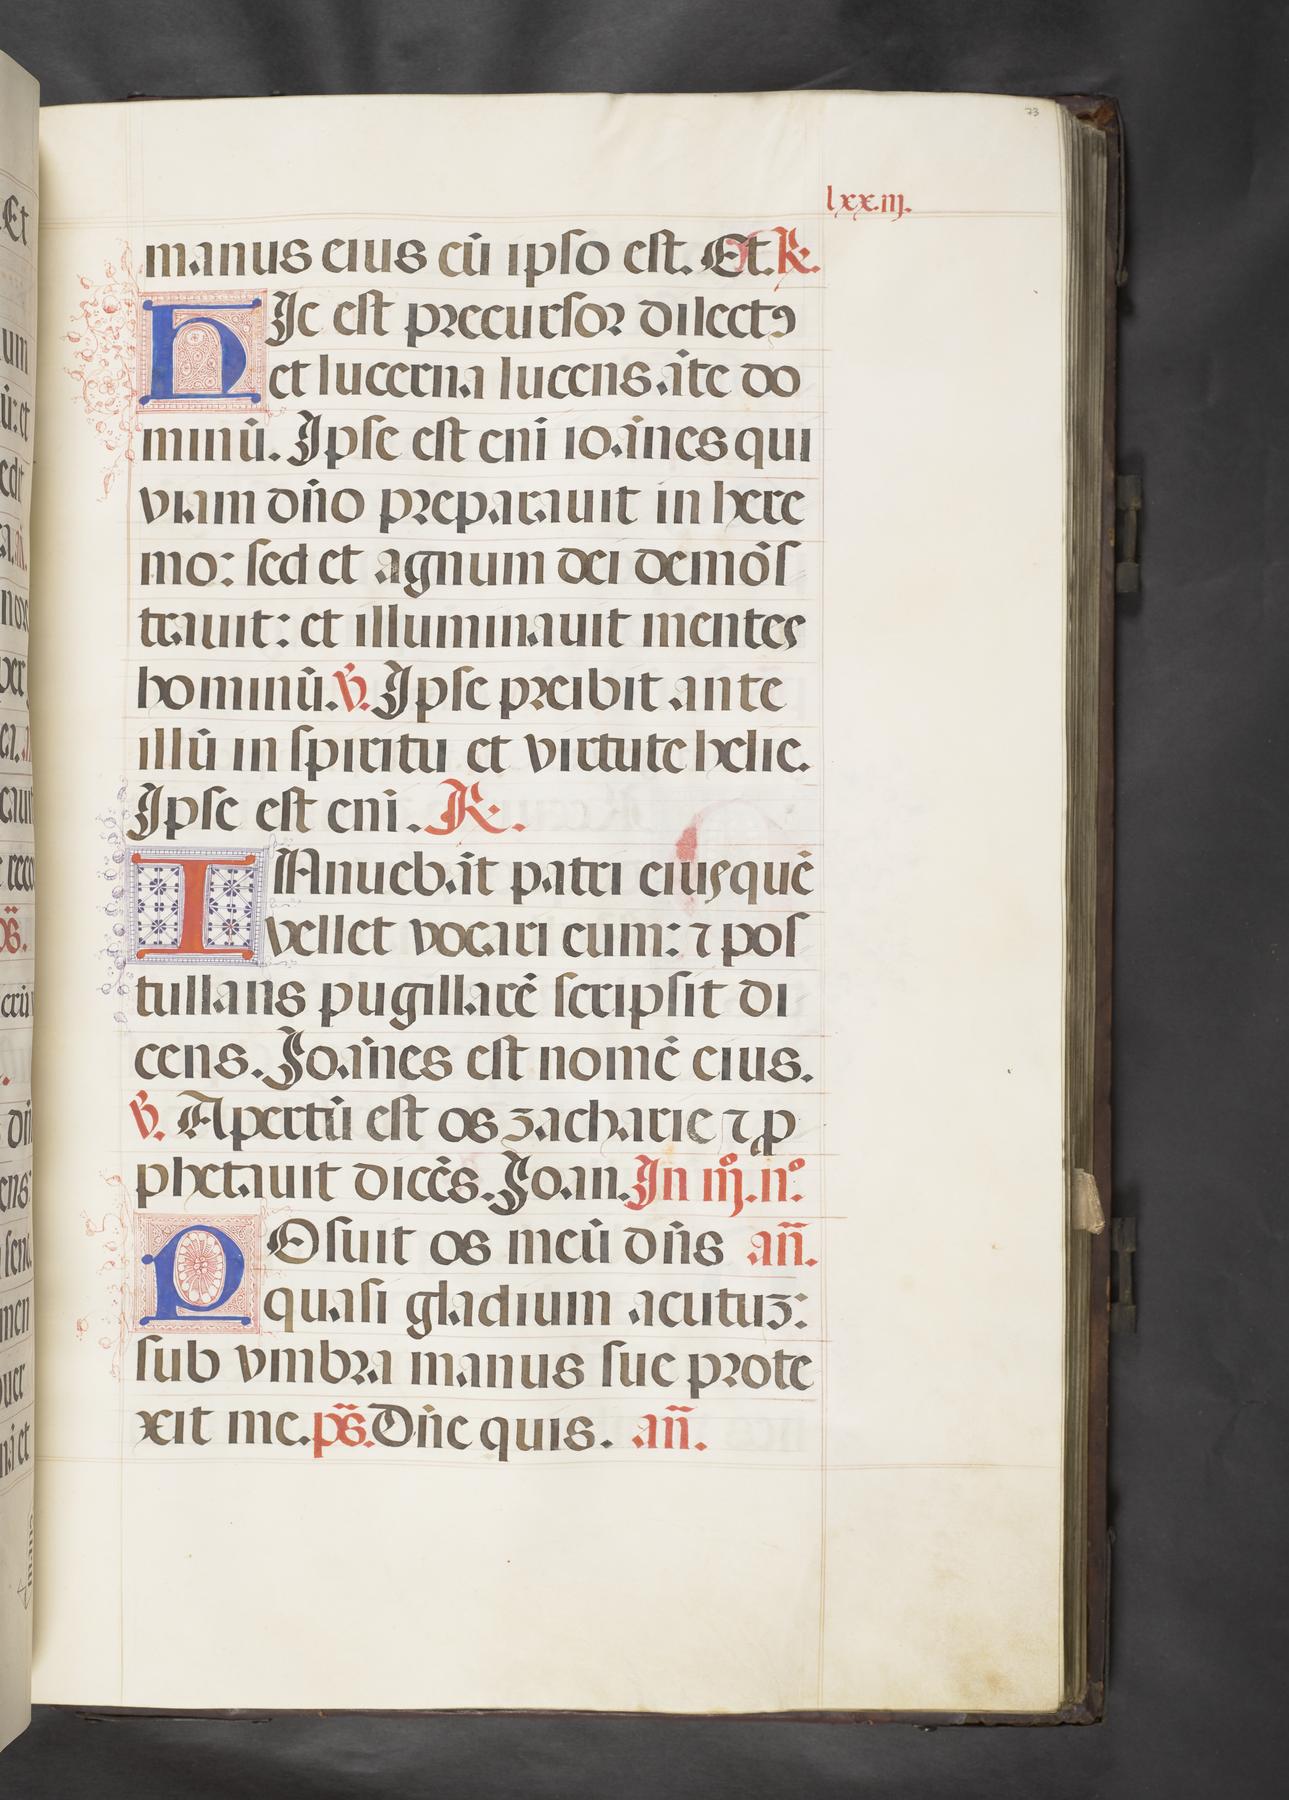 73
lxx.iij.
manus eius cū ipso est. Et. R.
HJc est precursor dilectꝰ
et lucerna lucens āte do
minū. Jpse est eni ioānes qui
viam dn̄o preparauit in here
mo: sed et agnum dei demōs
trauit: et illuminauit mentes
hominū. V. Jpse preibit ante
illū in spiritu et virtute helie.
Jpse est eni. R.
INnuebāt patri eius quē
vellet vocari eum: ⁊ pos
tullans pugillarē scripsit di
cens. Joānes est nomē eius.
V. Apertū est os zacharie ⁊ ꝓ
phetauit dicēs. Joan. Jn iijº. nº.
POsuit os meū dn̄s an̄.
quasi gladium acutuꝫ:
sub vmbra manus sue prote
xit me. ps̄. Dn̄e quis. an̄.